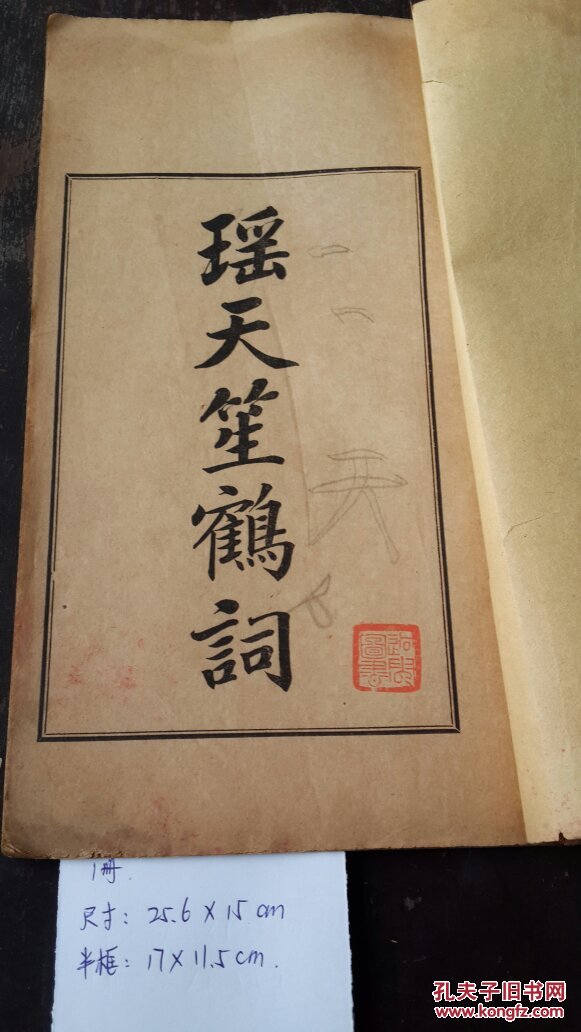 瑶天笙鶴詞
1冊.
尺寸: 25.6 X 15 cm
半框: 17 X 11.5 cm.
孔夫子旧书网
www.kongfz.com